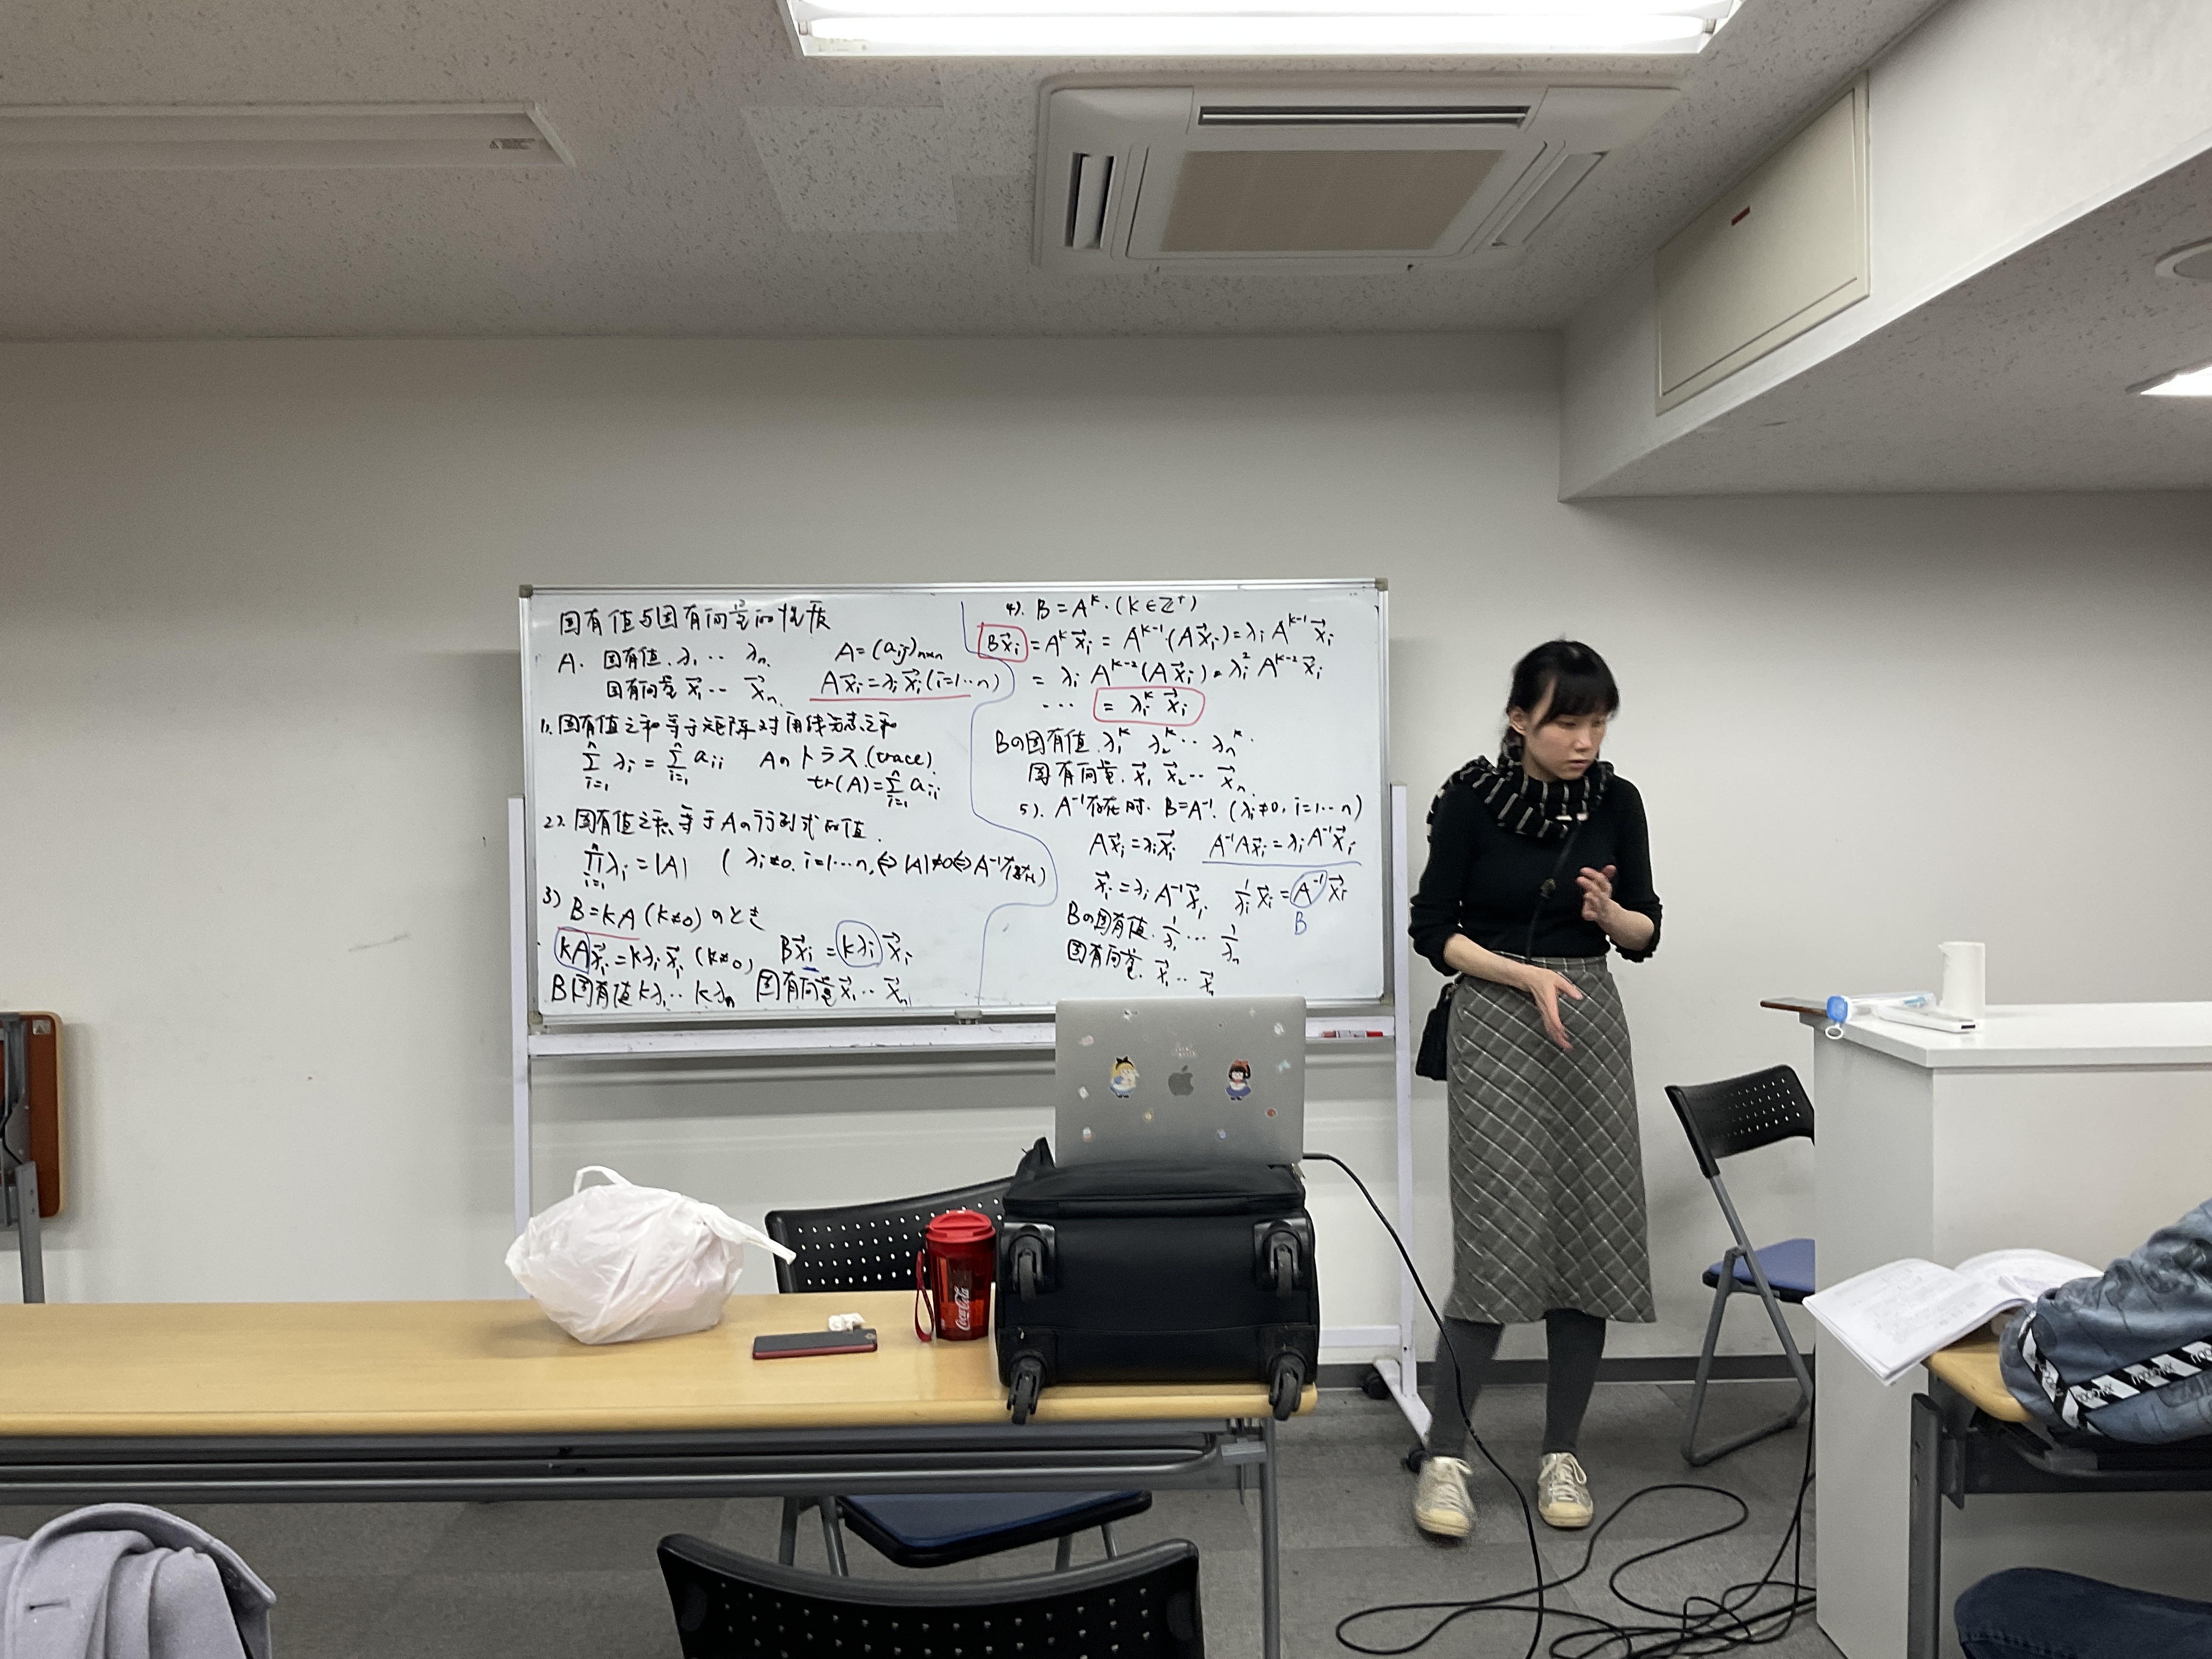 固有值与固有向量的性质
A. 固有值. λ₁ ‥ λₙ. A = (aij)ₙₓₙ
固有向量 x⃗₁ ‥ x⃗ₙ. Ax⃗ᵢ = λᵢx⃗ᵢ (i=1‥n)
1). 固有值之和等于矩阵对角线元素之和
n∑i=1 λᵢ = n∑i=1 aᵢᵢ Aのトラス.(trace).
tr(A) = n∑i=1 aᵢᵢ
2). 固有值之积等于Aの行列式的值.
n∏i=1 λᵢ = |A| ( λᵢ≠0. i=1‥n, ⇔ |A|≠0 ⇔ A⁻¹存在)
3) B = kA (k≠0) のとき
kAx⃗ᵢ = kλᵢx⃗ᵢ (k≠0), Bx⃗ᵢ = kλᵢ x⃗ᵢ
B固有值 kλ₁‥ kλₙ 固有向量 x⃗₁‥ x⃗ₙ
4). B = Aᵏ. (k∈ℤ⁺)
Bx⃗ᵢ = Aᵏx⃗ᵢ = Aᵏ⁻¹·(Ax⃗ᵢ) = λᵢ Aᵏ⁻¹x⃗ᵢ
= λᵢ Aᵏ⁻²(Ax⃗ᵢ) = λᵢ² Aᵏ⁻²x⃗ᵢ
‥· = λᵢᵏ x⃗ᵢ
Bの固有值. λ₁ᵏ λ₂ᵏ‥ λₙᵏ.
固有向量. x⃗₁ x⃗₂‥ x⃗ₙ.
5). A⁻¹存在时. B=A⁻¹. (λᵢ≠0, i=1‥n)
Ax⃗ᵢ = λᵢx⃗ᵢ A⁻¹Ax⃗ᵢ = λᵢA⁻¹x⃗ᵢ
x⃗ᵢ = λᵢA⁻¹x⃗ᵢ 1/λᵢ x⃗ᵢ = A⁻¹x⃗ᵢ
B
Bの固有值. 1/λ₁ ‥ 1/λₙ
固有向量. x⃗₁ ‥ x⃗ₙ
Coca-Cola